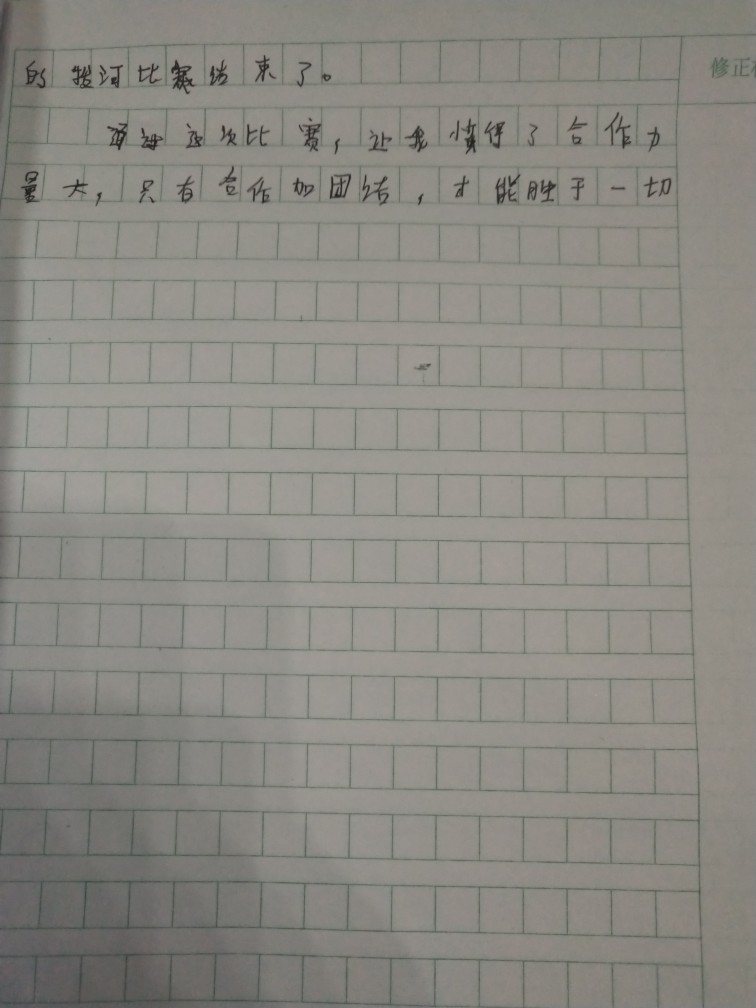 的拔河比赛结束了。
通过这次比赛，让我懂得了合作力
量大，只有合作加团结，才能胜于一切
修正